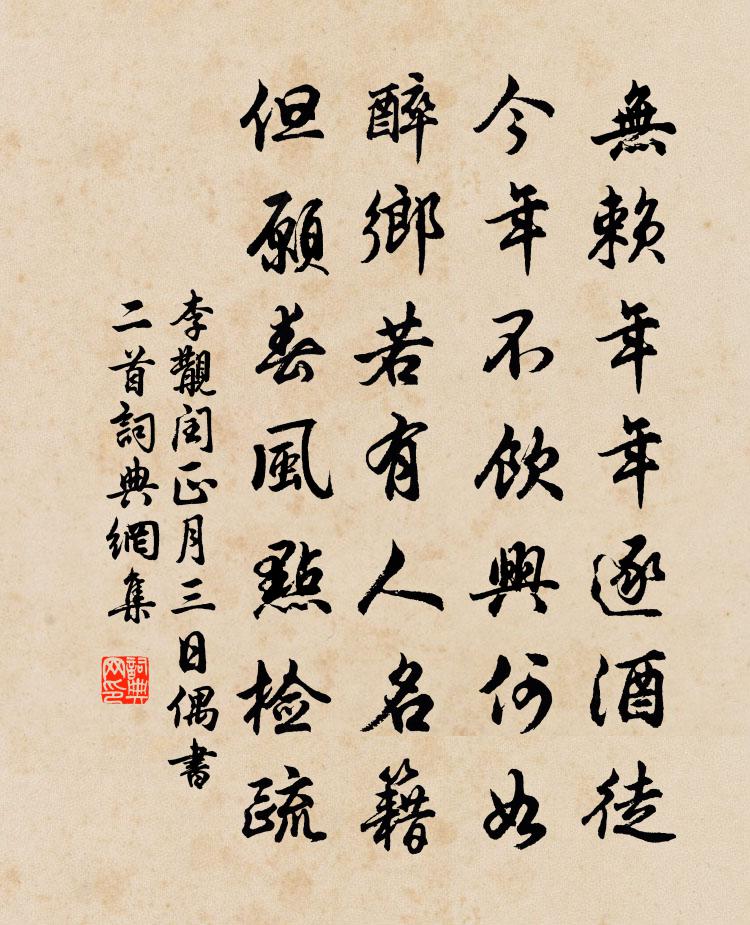 無賴年年逐酒徒
今年不飲興何如
醉鄉若有人名籍
但願春風點檢疏
李覯閏正月三日偶書
二首詞典網集
詞典網印